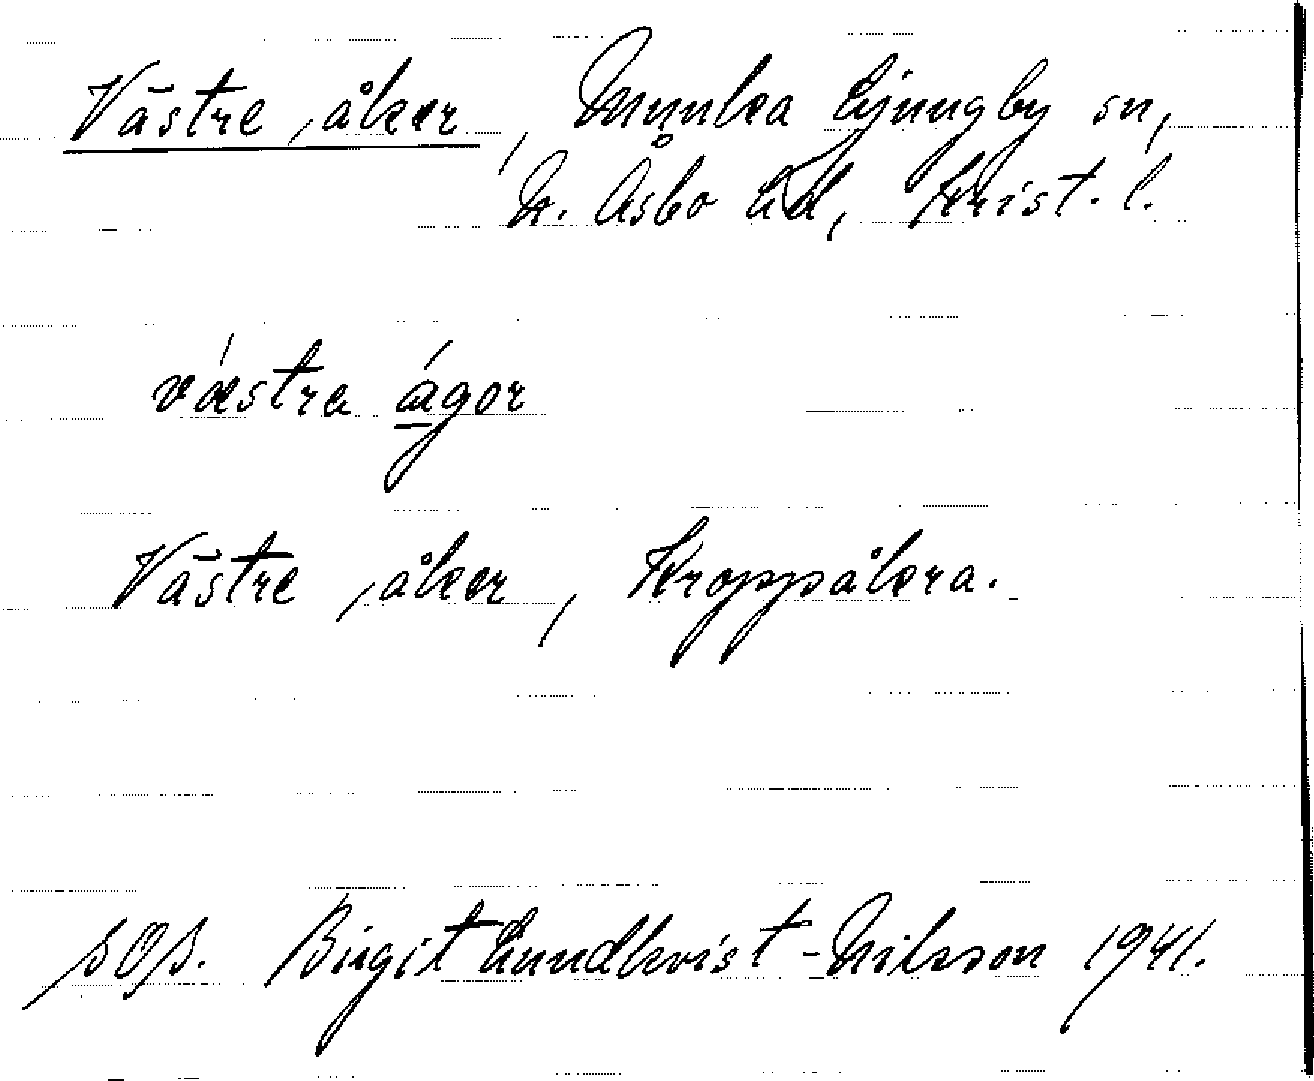 Västre åker, Munka Ljungby sn,
N. Åsbo hd, Krist. l.
västra ágor
Västre åker, Kroppåkra.
Birgit Lundkvist-Nilsson 1941.